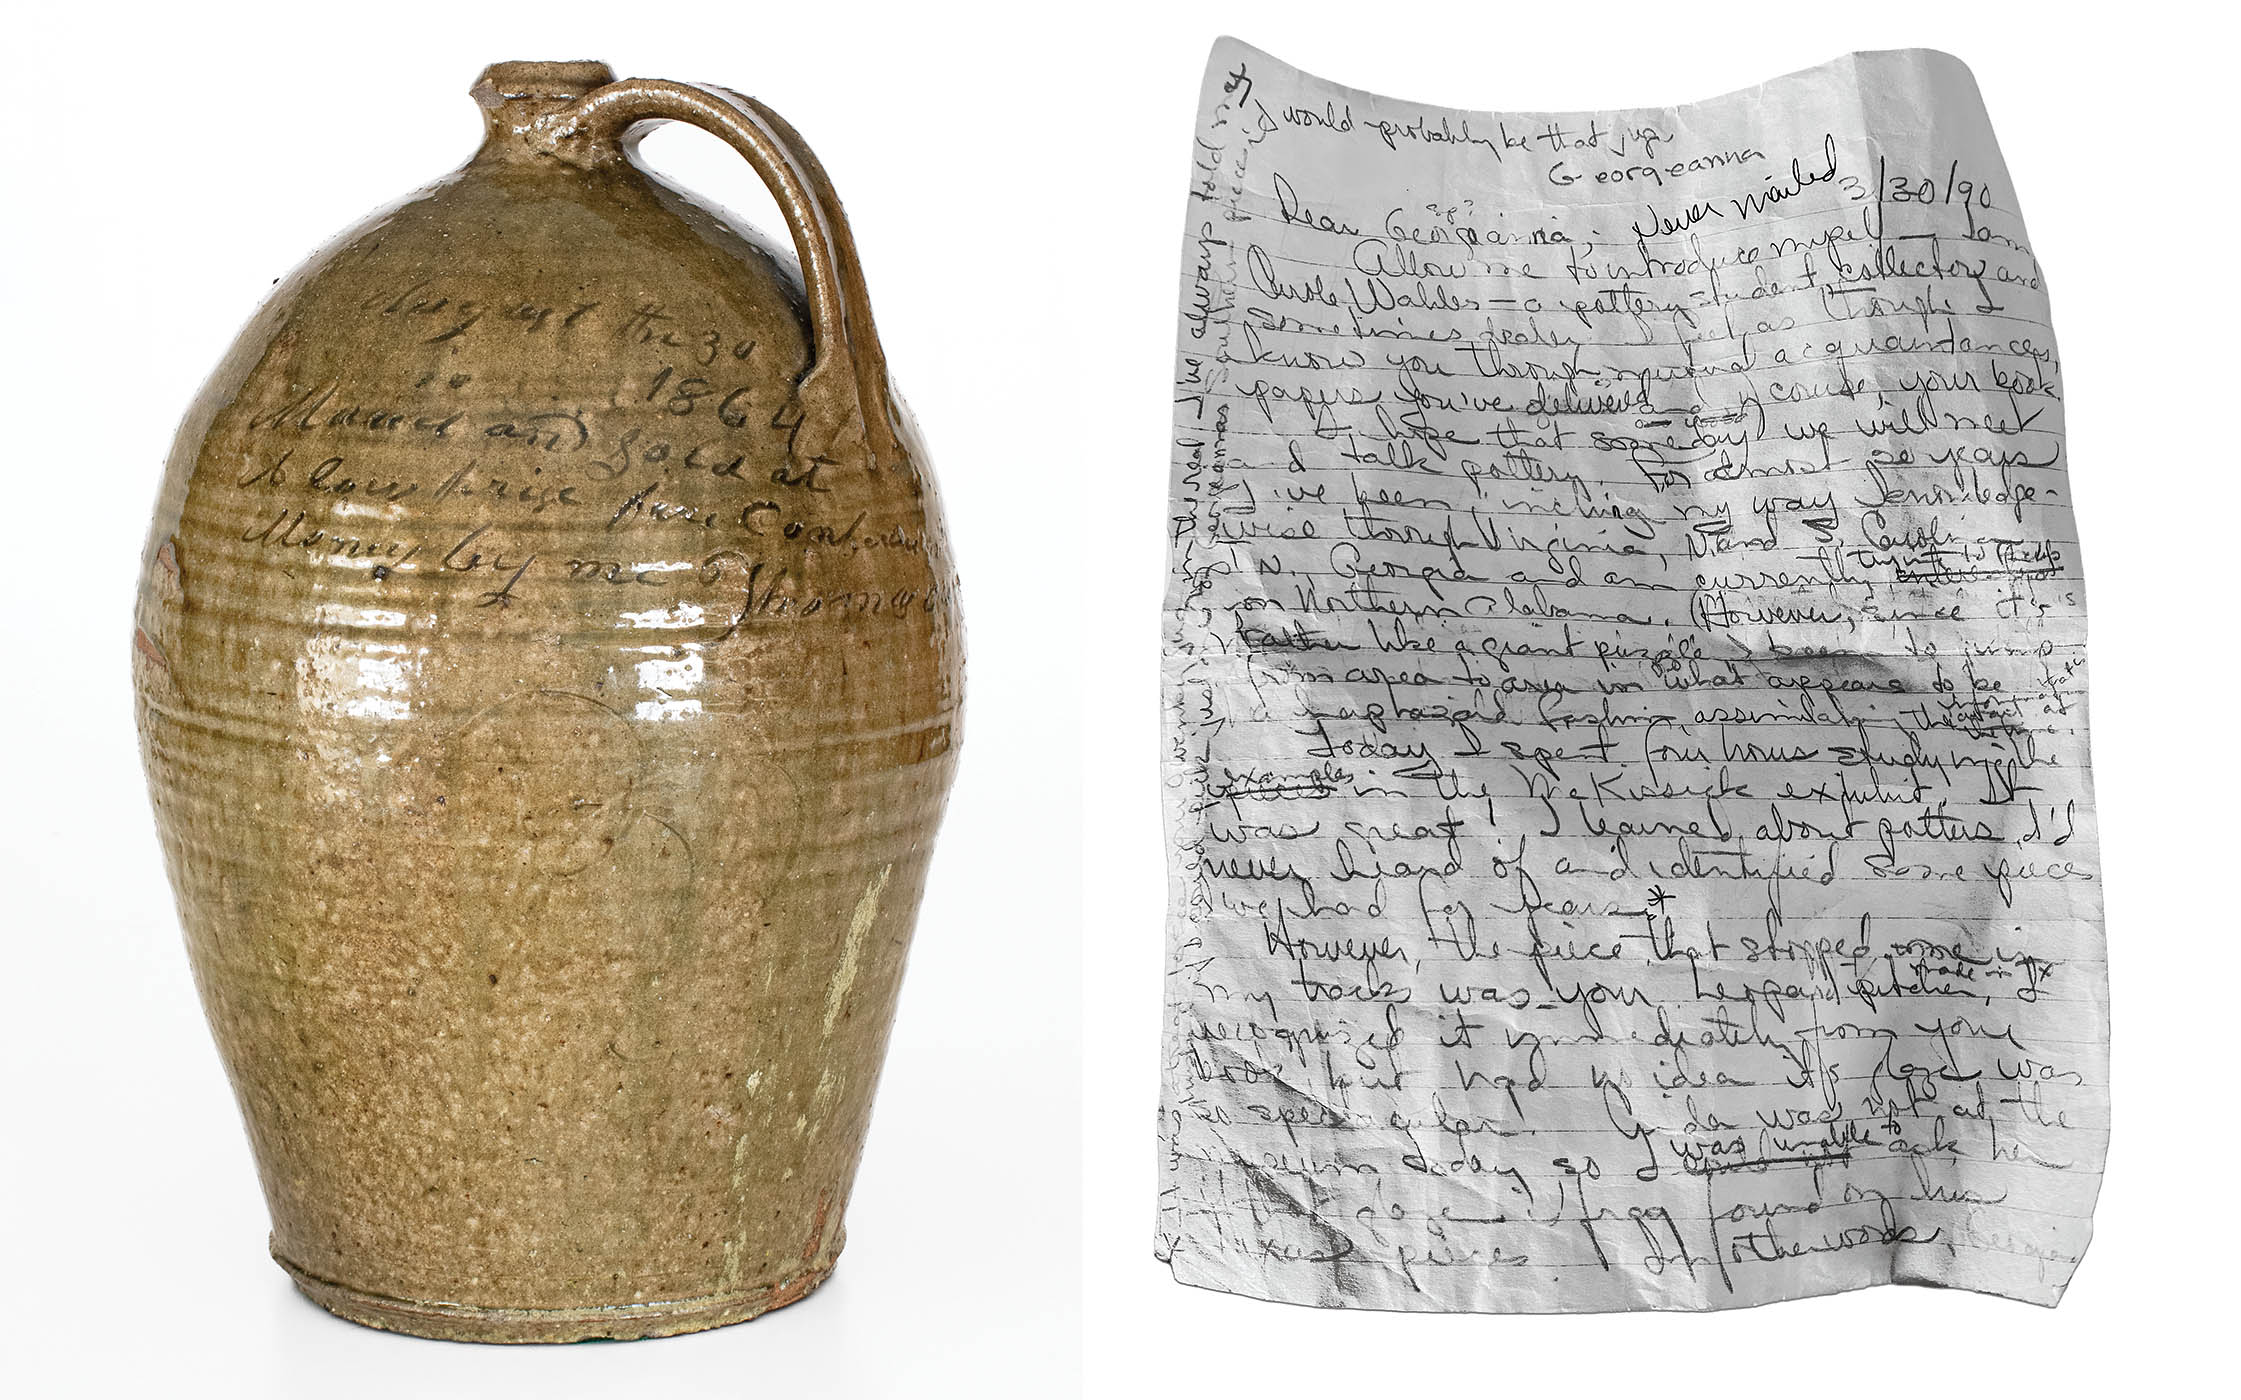 August the 30
1864
and Sold at
A low prise pure Confed
Money by me
I would probably be that jug.
Georgeanna
Never mailed 3/30/90
sp?
Dear Georgianna,
Allow me to introduce myself — I am
Wahler — a pottery student, collector, and
sometimes dealer. I feel as though I
know you through mutual acquaintances,
papers you've delivered and of course, your book.
I hope that someday we will meet
and talk pottery. For almost 20 years
I've been inching my way knowledge-
wise through Virginia, N. and S. Carolina
N. Georgia and am currently trying to
on Northern Alabama. (However, since it's
rather like a giant puzzle I to jump
from area to area in what appears to be
a haphazard fashion, assimilating the
Today I spent four hours studying the
examples in the McKissick exhibit. It
was great! I learned about potters I'd
never heard of and identified some pieces
I've had for years.*
However, the piece that stopped me in
my tracks was your Leopard pitcher, made in Tx I
recognized it immediately from your
book but had no idea its glaze was
so spectacular! was not at the
museum today so I was unable to ask her
if that glaze is found on her
Texas pieces. In other words,
I've always told my